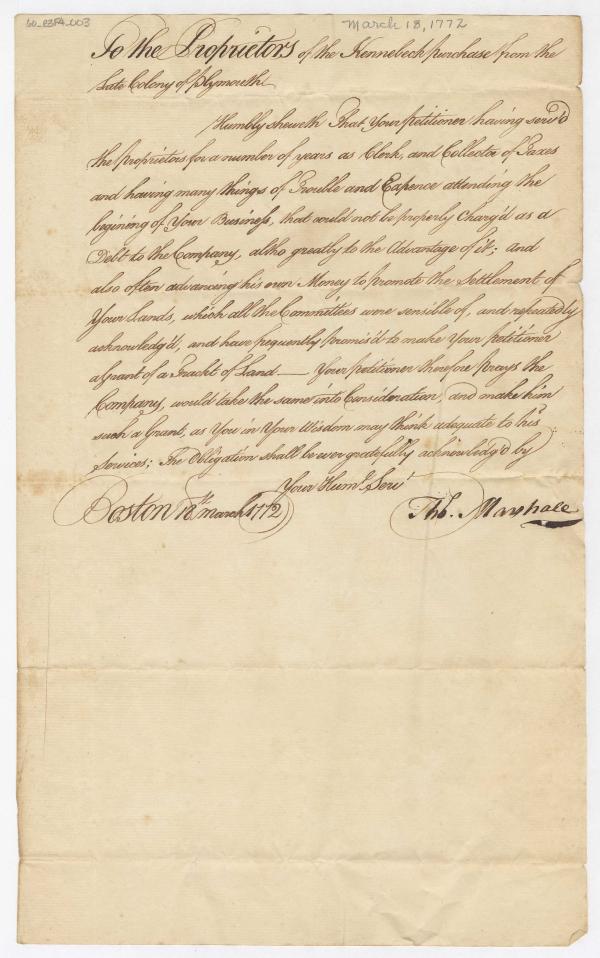 60_B3F4_003
March 18, 1772
To the Proprietors of the Kennebeck purchase from the
Late Colony of plymouth
Humbly sheweth That Your petitioner having serv'd
the proprietors for a number of years as Clerk, and Collector of Taxes
and having many things of Trouble and Expence attending the
begining of Your Business, that could not be properly Charg'd as a
Debt to the Company, altho greatly to the Advantage of it; And
also often advancing his own Money to promote the Settlement of
Your Lands, which all the Committees were sensible of, and repeatedly
acknowledg'd, and have frequently promis'd to make Your petitioner
a Grant of a Tracht of Land — Your petitioner therefore prays the
Company, would take the same into Consideration, and make him
such a Grant, as You in Your Wisdom may think adequate to his
Services; The Obligation shall be ever gratefully acknowledg'd by
Your Humle Servt
Boston 18th march 1772
Tho. Marshall